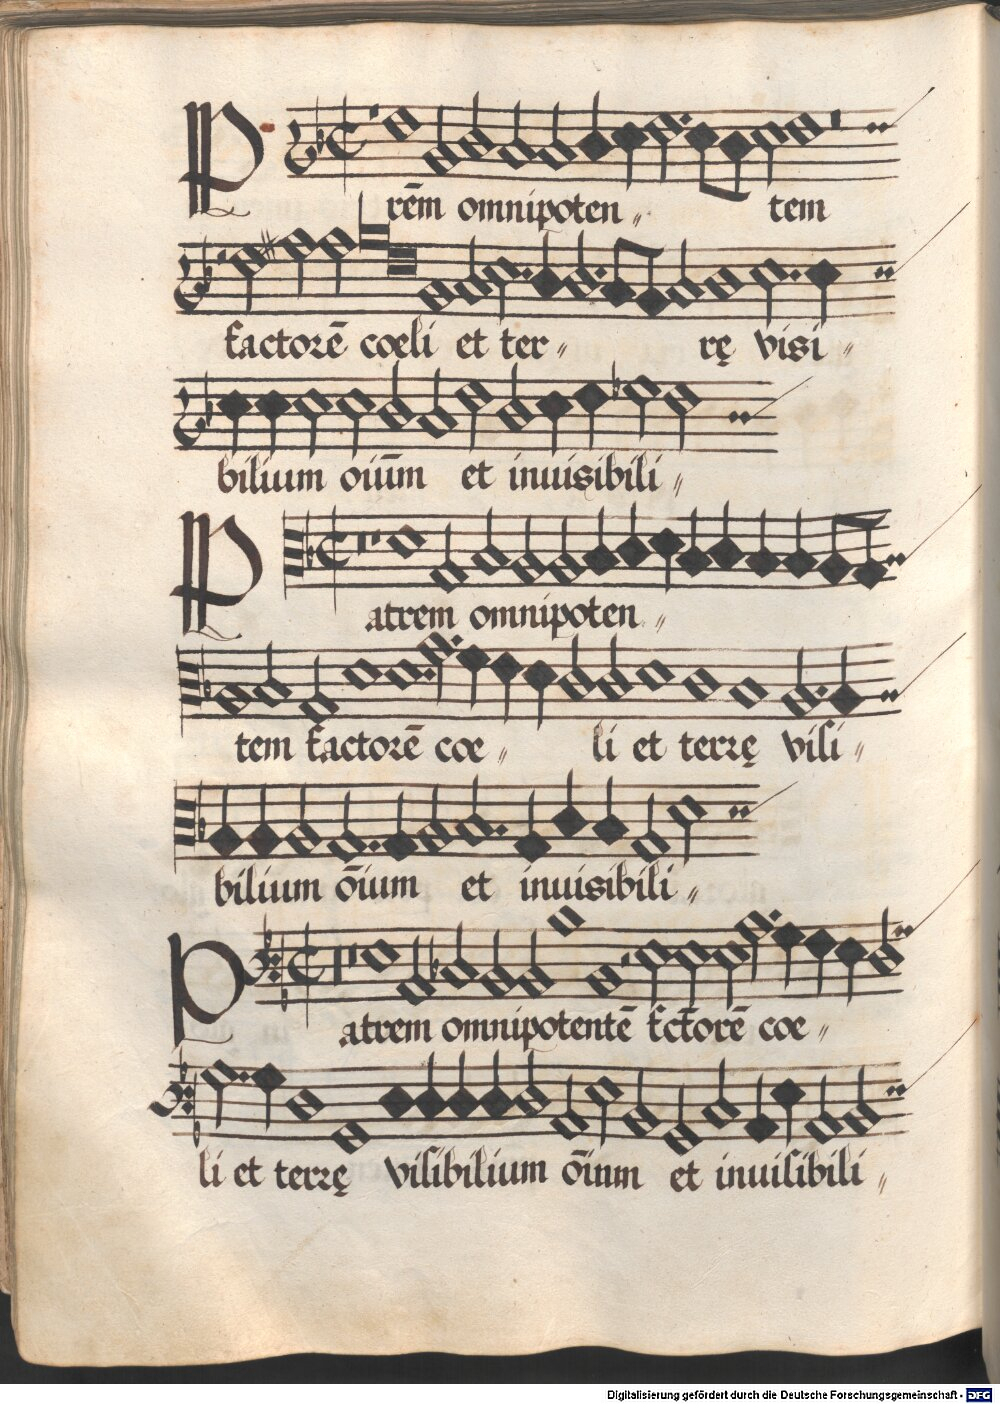 P rēm omnipoten〃 tem
factorē coeli et ter〃 rę visi〃
bilium oiūm et inuisibili〃
P atrem omnipoten〃
tem factorē coe〃 li et terrę visi〃
bilium ōium et inuisibili〃
P atrem omnipotentē fctorē coe〃
li et terrę visibilium ōium et inuisibili〃
Digitalisierung gefördert durch die Deutsche Forschungsgemeinschaft - DFG